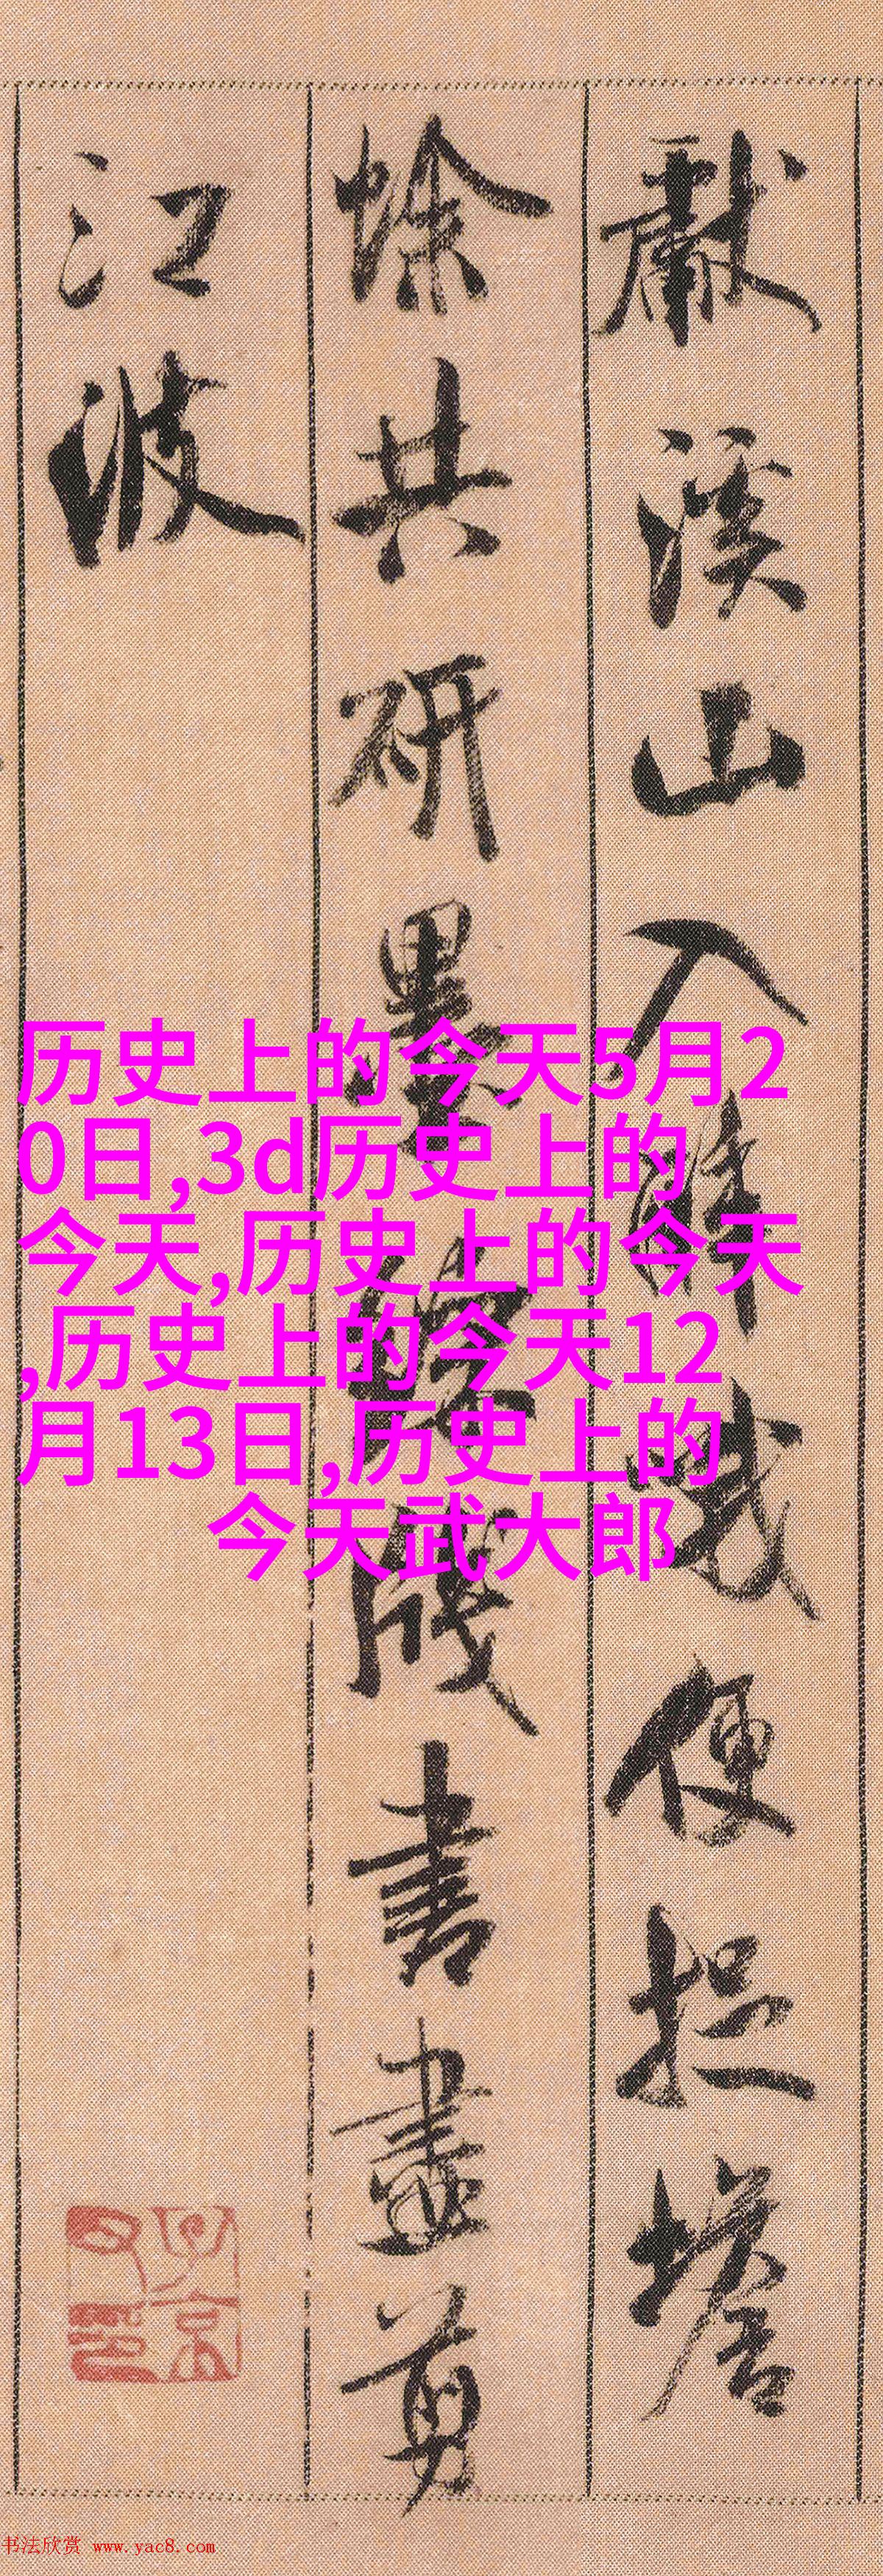 獻溪山入醉哦便捉蟾
蜍共研墨綵牋書盡剪
江波
历史上的今天5月2
0日,3d历史上的
今天,历史上的今天
,历史上的今天12
月13日,历史上的
今天武大郎
书法欣赏 www.yac8.com